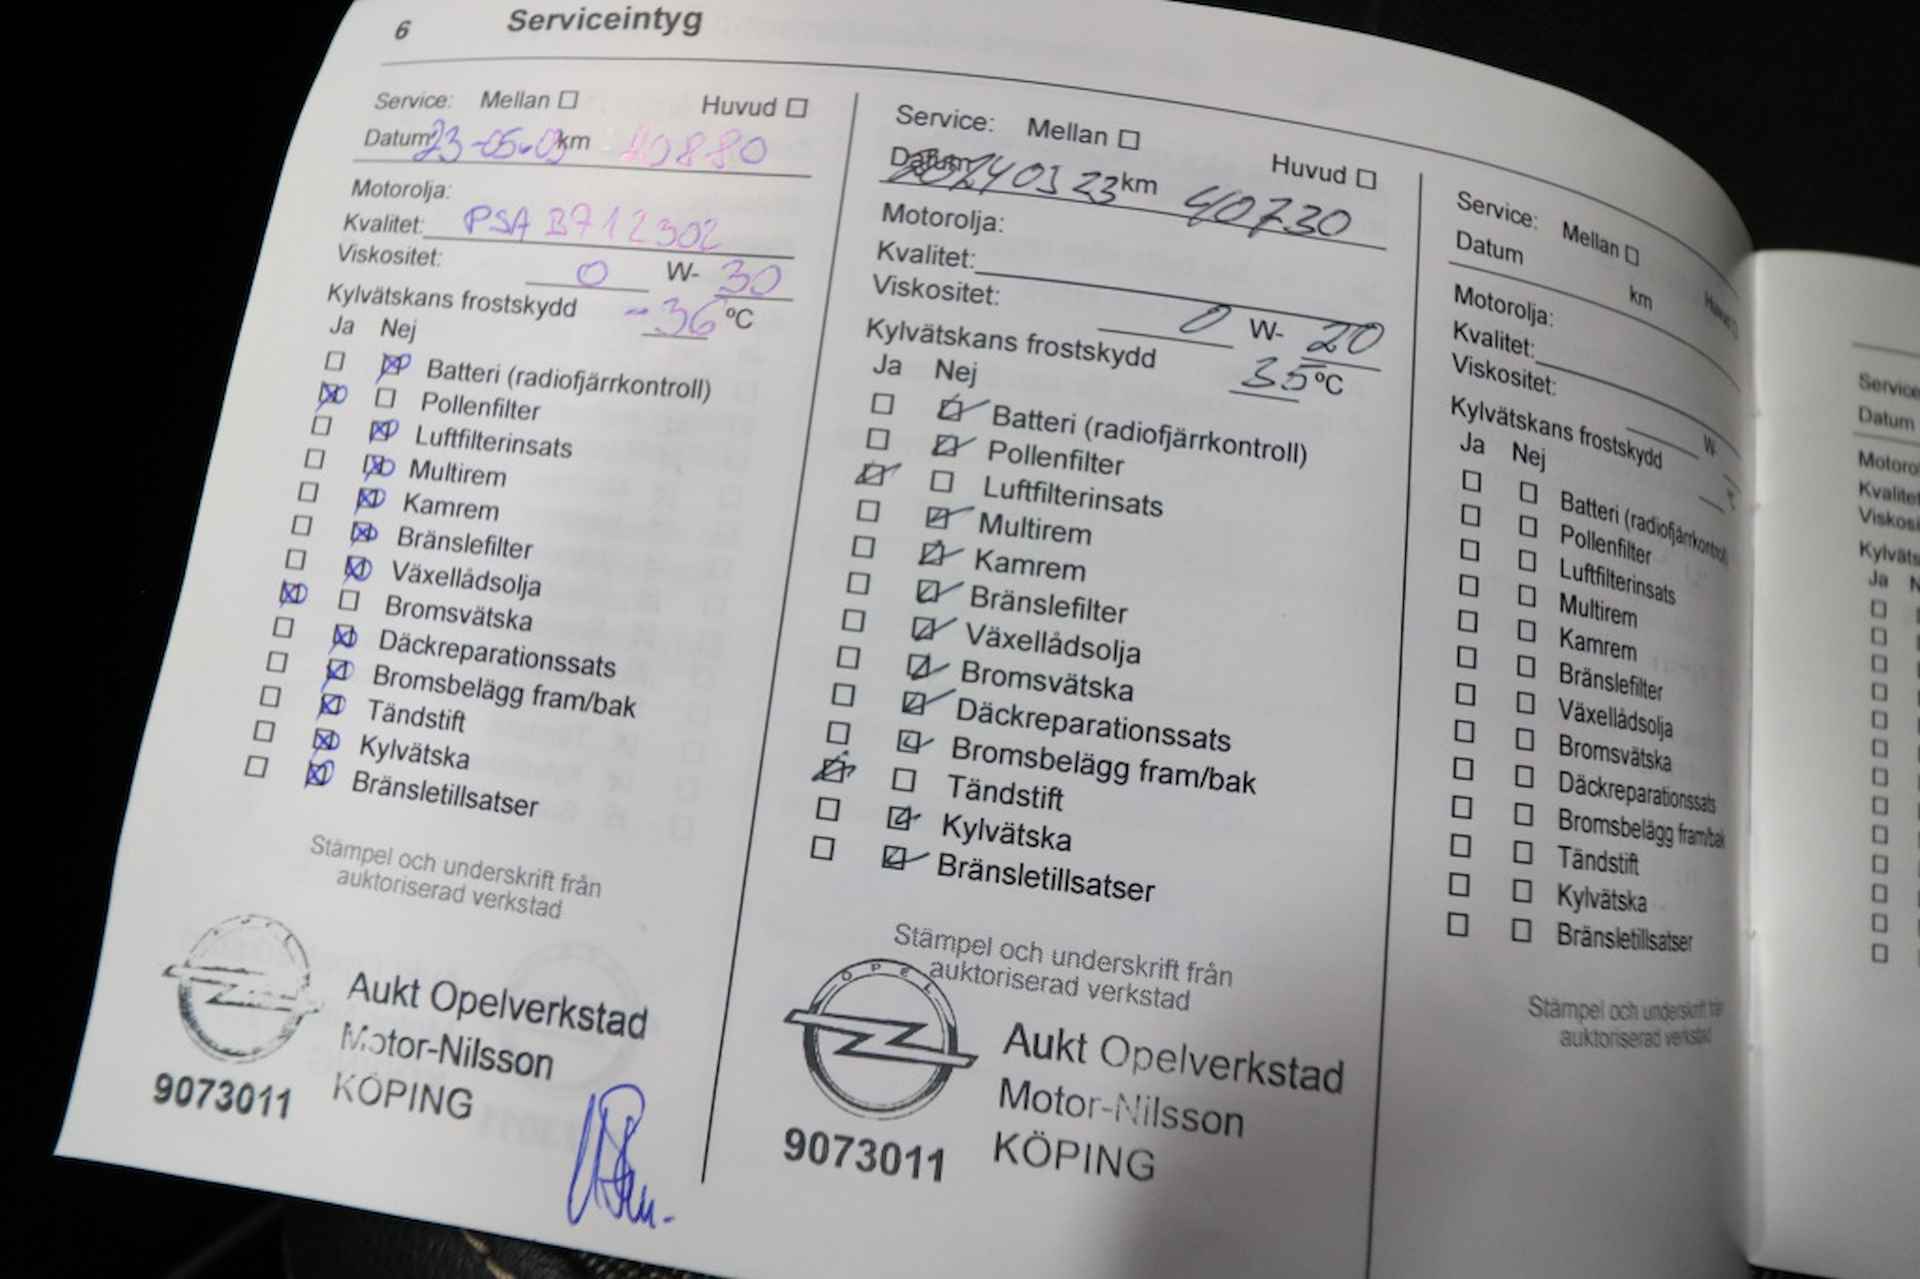 6 Serviceintyg
Service: Mellan Huvud
Datum 23-05-09 km 40880
Motorolja:
Kvalitet: PSA B712302
Viskositet: 0 W- 30
Kylvätskans frostskydd -36 ºC
Ja Nej
Batteri (radiofjärrkontroll)
Pollenfilter
Luftfilterinsats
Multirem
Kamrem
Bränslefilter
Växellådsolja
Bromsvätska
Däckreparationssats
Bromsbelägg fram/bak
Tändstift
Kylvätska
Bränsletillsatser
Stämpel och underskrift från
auktoriserad verkstad
Aukt Opelverkstad
Motor-Nilsson
9073011 KÖPING
Service: Mellan Huvud
Datum 20240523 km 40730
Motorolja:
Kvalitet:
Viskositet: 0 W- 20
Kylvätskans frostskydd 35 ºC
Ja Nej
Batteri (radiofjärrkontroll)
Pollenfilter
Luftfilterinsats
Multirem
Kamrem
Bränslefilter
Växellådsolja
Bromsvätska
Däckreparationssats
Bromsbelägg fram/bak
Tändstift
Kylvätska
Bränsletillsatser
Stämpel och underskrift från
auktoriserad verkstad
OPEL
Aukt Opelverkstad
Motor-Nilsson
9073011 KÖPING
Service: Mellan
Datum km
Motorolja:
Kvalitet:
Viskositet: W-
Kylvätskans frostskydd
Ja Nej
Batteri (radiofjärrkontroll)
Pollenfilter
Luftfilterinsats
Multirem
Kamrem
Bränslefilter
Växellådsolja
Bromsvätska
Däckreparationssats
Bromsbelägg fram/bak
Tändstift
Kylvätska
Bränsletillsatser
Stämpel och underskrift från
auktoriserad verkstad
Service
Datum
Ja